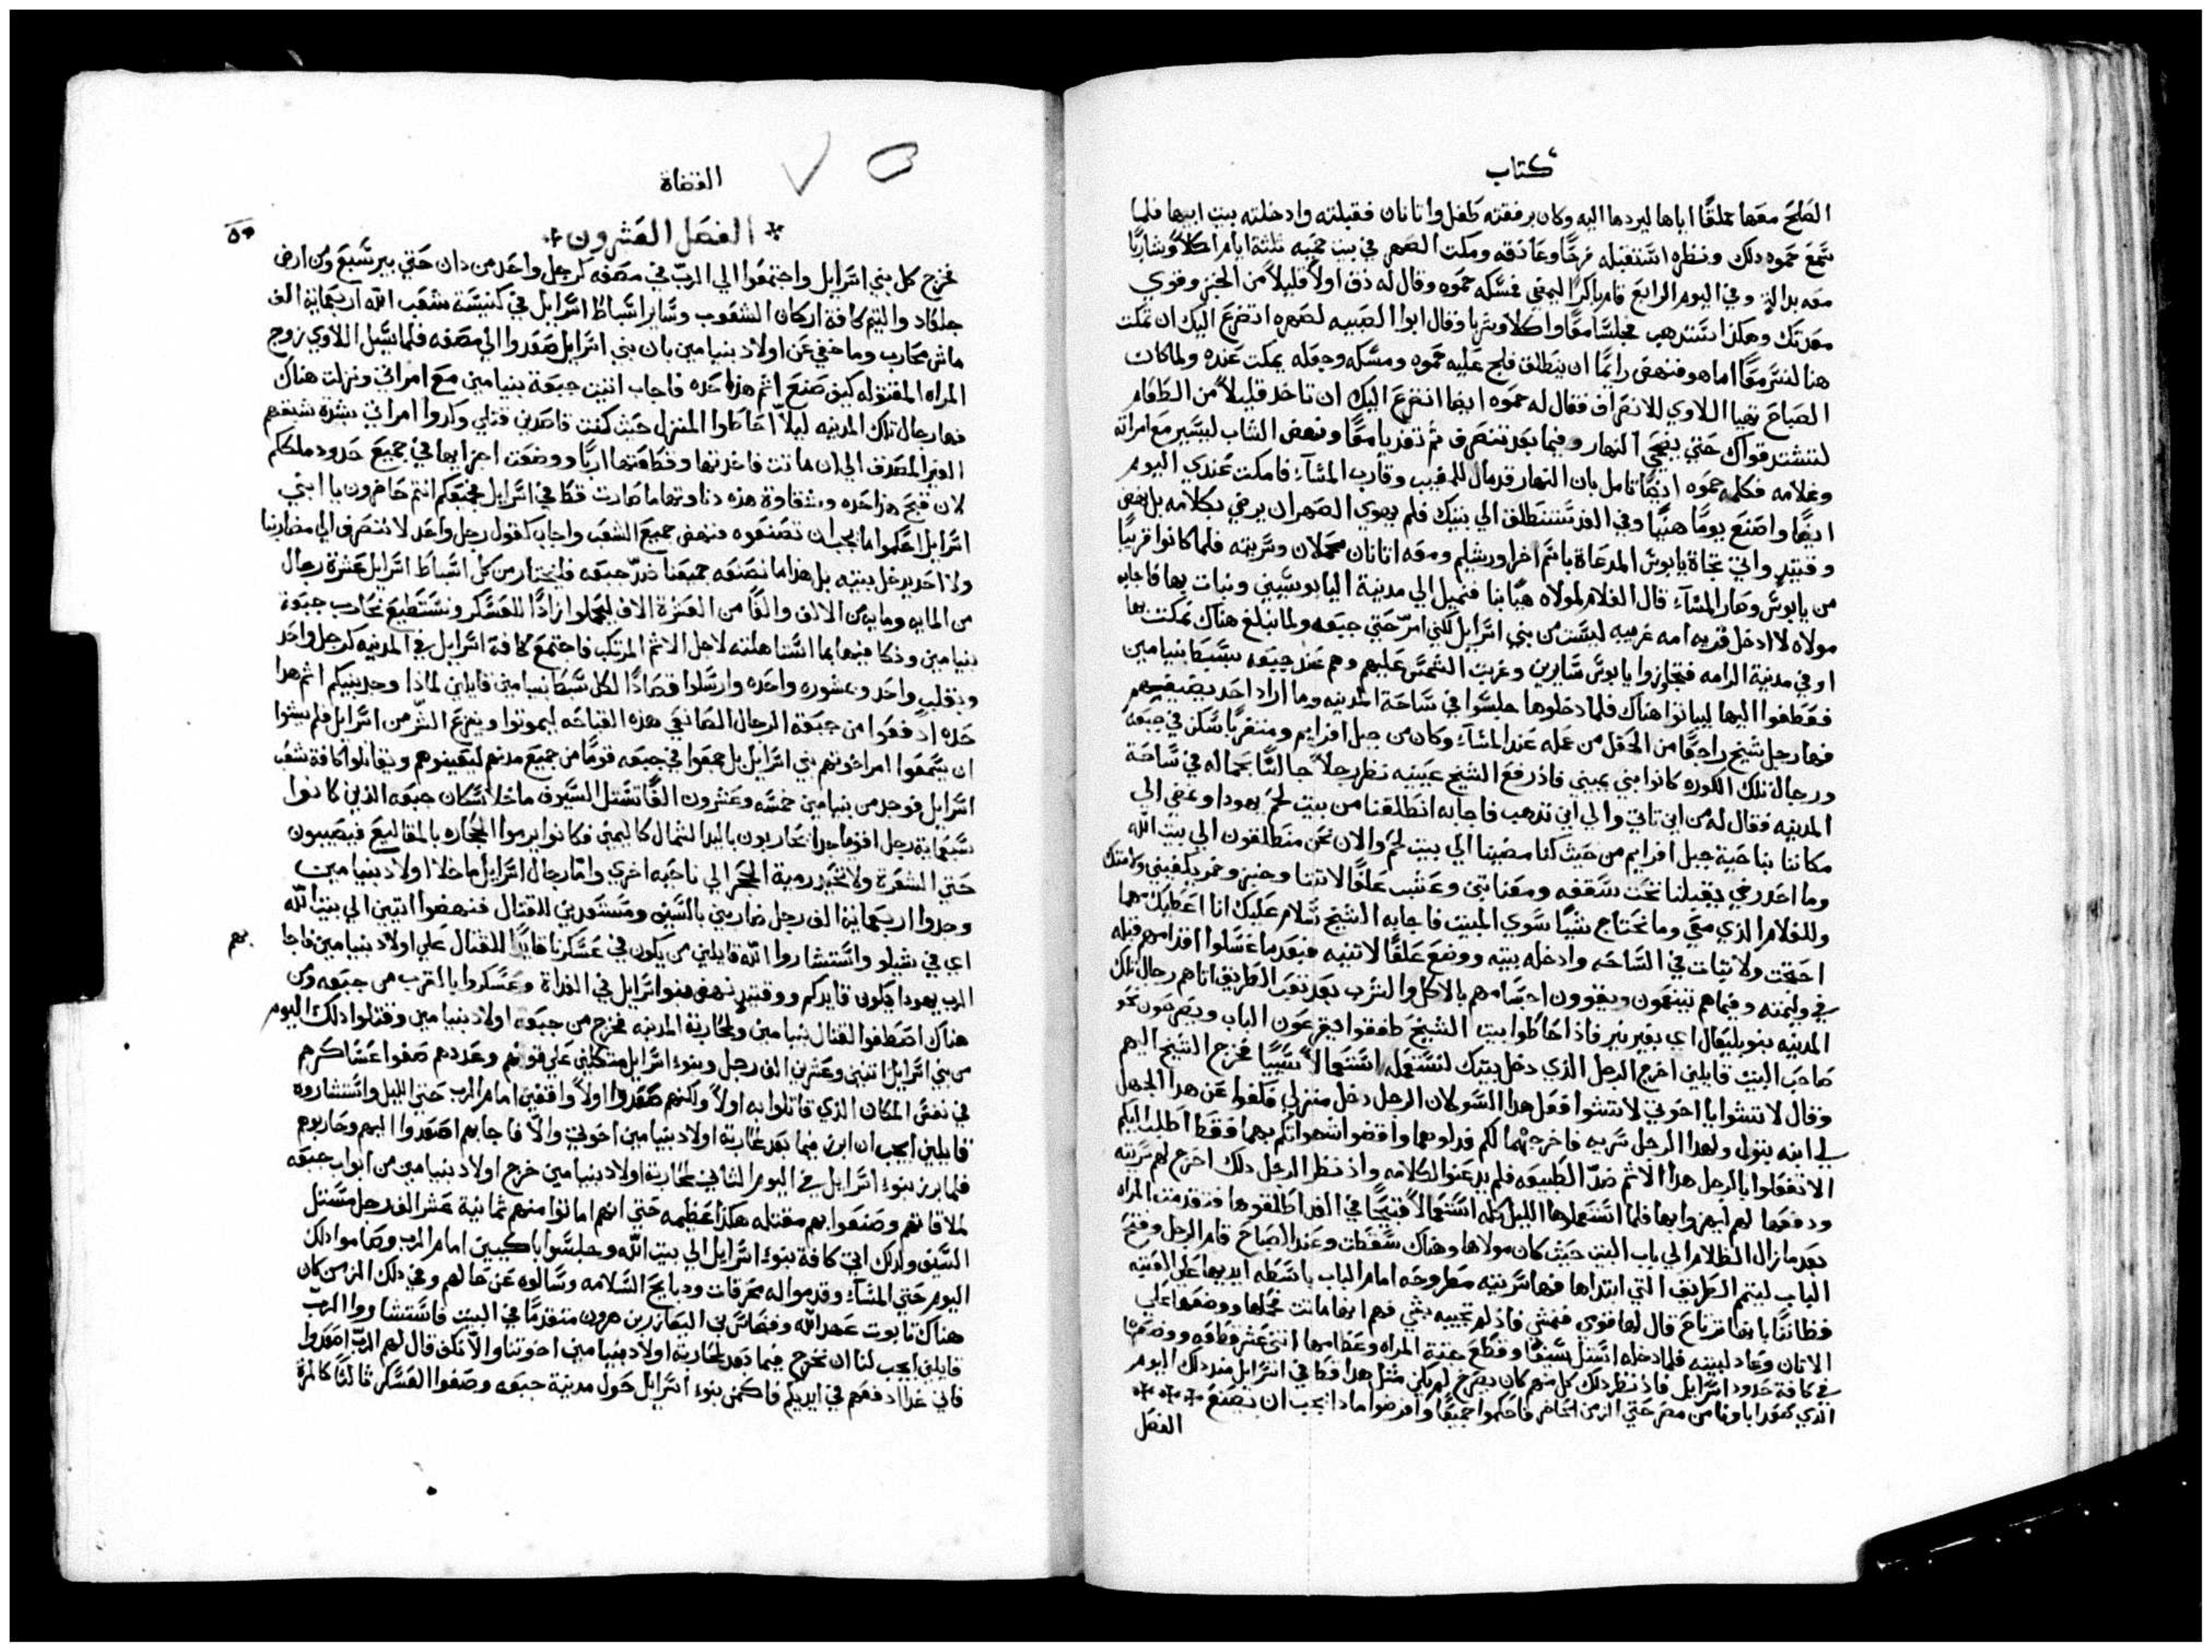 كتاب
الصلح معها تملقًا اياها ليردها اليه وكان برفقته طفل واتانان فقبلته وادخلته بيت ابيها فلما
سمع حموه ذلك ونظره استقبله فرحًا وعانقه ومكث الصهر في بيت حميه ثلثة ايام اكلاً وشاربًا
معه بدالة وفي اليوم الرابع قام باكرًا ليمضي فمسكه حموه وقال له ذق اولاً قليلاً من الخبز وقوي
معدتك وهكذا ستذهب فجلسا معًا واكلا وشربا وقال ابوا الصبيه لصهره اتضرع اليك ان تمكث
هنا لنسر معًا اما هو فنهض رايمًا ان ينطلق فلج عليه حموه ومسكه وجعله يمكث عنده ولما كان
الصباح تهيا اللاوي للانصراف فقال له حموه ايضا اتضرع اليك ان تاخذ قليلاً من الطعام
لتشتد قواك حتي يضحي النهار وفيما بعد تنصرف ثم تغديا معًا ونهض الشاب ليسير مع امراته
وغلامه فكلمه حموه ايضًا تامل بان النهار قد مال للمغيب وقارب المسآء فامكث عندي اليوم
ايضًا واصنع يومًا هنيًا وفي الغد ستنطلق الي بيتك فلم يهوي الصهر ان يرضي بكلامه بل مضي
وقتيدٍ واتي تجاة يابوس المدعاة باسم اخر اورشليم ومعه اتانان محملان وسريته فلما كانوا قريبًا
من يابوس وصار المسآء قال الغلام لمولاه هيًا بنا فنميل الي مدينة اليابوسيين ونبات بها فاجابه
مولاه لا ادخل قريه امه غريبه ليست من بني اسرايل لكني امرّ حتي جبعه ولما نبلغ هناك نمكث بها
او في مدينة الرامه فتجازوا يابوس سايرين وغربت الشمس عليهم وهم عند جبعه سبط بنيامين
فعطفوا اليها ليباتوا هناك فلما دخلوها جلسوا في ساحة المدينه وما اراد احد يضيفهم
فها رجل شيخ راجعًا من الحقل من عمله عند المسآء وكان من جبل افرايم ومتغربًا سكن في جبعه
ورجال تلك الكوره كانوا بني يميني فاذ رفع الشيخ عينيه نظر رجلاً جالسًا بحماله في ساحة
المدينه فقال له من اين تاتي والي اين تذهب فاجابه انطلقنا من بيت لحم يهودا ونمضي الي
مكاننا بناحية جبل افرايم من حيث كنا مضينا الي بيت لحم والان نحن منطلقون الي بيت الله
وما احد رضي يقبلنا تحت سقفه ومعنا تبن وعشب علفًا لاتننا وخبز وخمر يكفيني ولامتك
وللغلام الذي معي وما نحتاج شيًا سوي المبيت فاجابه الشيخ سلام عليك انا اعطيك مهما
احتجت ولا تبات في الساحه وادخله بيته ووضع علفًا لاتنيه فبعد ما غسلوا اقدامهم قبله
في وليمته وفيما هم يتنعمون ويقوون اجسامهم بالاكل والشرب بعد تعب الطريق اتاهم رجال تلك
المدينه بنو بليعال اي بغير نير فاذ احاطوا بيت الشيخ طفقوا يقرعون الباب ويصرخون نحو
صاحب البيت قايلين اخرج الرجل الذي دخل بيتك لنستعمله استعمالاً سييًا فخرج الشيخ اليهم
وقال لا تشوا يا اخوتي لا تشوا فعل هذا السو لان الرجل دخل منزلي فكفوا عن هذا الجهل
لي ابنه بتول ولهذا الرجل سريه فاخرجهما لكم فذلوهما واقضوا شهواتكم بهما فقط اطلب اليكم
الا تفعلوا بالرجل هذا الاثم ضدّ الطبيعه فلم يذعنوا لكلامه واذ نظر الرجل ذلك اخرج لهم سريته
ودفعها لهم ليهزوا بها فلما استعملوها الليل كله استعمالاً قبيحًا في الغد اطلقوها فتقدمت المراه
بعد ما زال الظلام الي باب البيت حيث كان مولاها وهناك سقطت وعند الصباح قام الرجل وفتح
الباب ليتم الطريق التي ابتداها فها سريته مطروحه امام الباب باسطه ايديها علي العتبه
فظانًا بانها ترتاح قال لها قومي فنمشي فاذ لم تجبه بشي فهم انها ماتت فحملها ووضعها علي
الاتان وعاد لبيته فلما دخله استل سيفًا وقطع جثة المراه وعظامها اثني عشر قطعه ووضعها
في كافة حدود اسرايل فاذ نظر ذلك كل منهم كان يصرخ لم يكن مثل هذا قط في اسرايل منذ ذلك اليوم
الذي صعد اباونا من مصر حتي الزمن الحاضر فاحكموا جميعًا وافرضوا ماذا يجب ان يصنع
الفصل
القضاة
الفصل العشرون
فخرج كل بني اسرايل واجتمعوا الي الربّ في مصفه كرجل واحد من دان حتي بير سبع ومن ارض
جلعاد والتيم كافة اركان الشعوب وساير اسباط اسرايل في كنيسة شعب الله اربعماية الف
ماش محارب وما خفي عن اولاد بنيامين بان بني اسرايل صعدوا الي مصفه فلما سيل اللاوي زوج
المراه المقتوله كيف صنع اثم هذا حده فاجاب اتيت جبعة بنيامين مع امراتي ونزلت هناك
فها رجال تلك المدينه ليلاً احاطوا المنزل حيث كنت قاصدين قتلي وكدوا امراتي بشدة شبقهم
الغير المصدق الي ان ماتت فاخذتها وقطعتها اربًا ووضعت اجزايها في جميع حدود ملككم
لان قبح هذا حده وشقاوة هذه دناوتها ما صارت قط في اسرايل فجميعكم انتم حاضرون يا ابني
اسرايل احكموا ما يجب ان تصنعوه فنهض جميع الشعب واجاب كقول رجل واحد لا ننصرف الي مضاربنا
ولا احد يدخل بيته بل هذا ما نصنعه جميعنا ضدّ جبعه فليختار من كل اسباط اسرايل عشرة رجال
من المايه ومايه من الالف والفًا من العشرة الاف ليحملوا زادًا للعسكر ونستطيع نحارب جبعة
بنيامين ونكافيها بما استاهلته لاجل الاثم المرتكب فاجتمع كافة اسرايل في المدينه كرجل واحد
وبقلب واحد وبمشوره واحده وارسلوا قصادًا لكل سبط بنيامين قايلين لماذا وجد بينكم اثم هذا
حده ادفعوا من جبعة الرجال الصانعي هذه القباحه ليموتوا وينزع الشرّ من اسرايل فلم يشوا
ان يسمعوا امر اخوتهم بني اسرايل بل جمعوا في جبعه قومًا من جميع مدنهم ليعينوهم ويقاتلوا كافة شعب
اسرايل فوجد من بنيامين خمسه وعشرون الفًا تستل السيوف ما خلا سكان جبعه الذين كانوا
سبعماية رجل اقويا جدا يحاربون باليد الشمال كاليمني فكانوا يرموا الحجاره بالمقاليع فيصيبون
حتي الشعرة ولا تحيد رمية الحجر الي ناحيه اخري واما رجال اسرايل ما خلا اولاد بنيامين
وجدوا اربعماية الف رجل ضاربين بالسيف ومستعدين للقتال فنهضوا اتيين الي بيت الله
اي في شيلو واستشاروا الله قايلين من يكون في عسكرنا قايدًا للقتال علي اولاد بنيامين فاجا
بهم
الرب يهودا يكون قايدكم ووقتيدٍ نهض بنو اسرايل في الغداة وعسكروا بالقرب من جبعه ومن
هناك اصطفوا القتال بنيامين ولمحاربة المدينه فخرج من جبعه اولاد بنيامين وقتلوا ذلك اليوم
من بني اسرايل اثنين وعشرين الف رجل وبنوا اسرايل متكلين علي قوتهم وعددهم صفوا عساكرهم
في نفس المكان الذي قاتلوا به اولاً ولكنهم صعدوا اولاً واقفين امام الرب حتي الليل واستشاروه
قايلين ايجب ان ابرز فيما بعد لمحاربة اولاد بنيامين اخوتي والاّ فاجابهم اصعدوا اليهم وحاربوهم
فلما برز بنوء اسرايل في اليوم الثاني لمحاربة اولاد بنيامين خرج اولاد بنيامين من ابواب جبعه
لملاقاتهم وصنعوا بهم مقتله هكذا عظمه حتي انهم اماتوا منهم ثمانية عشر الف رجل مستل
السيف ولذلك اتي كافة بنوء اسرايل الي بيت الله وجلسوا باكيين امام الرب وصاموا ذلك
اليوم حتي المسآء وقدموا له محرقات وذبايح السلامه وسالوه عن حالهم وفي ذلك الزمن كان
هناك تابوت عهد الله وفنحاس بن اليعازر بن هرون متقدمًا في البيت فاستشاروا الربّ
قايلين ايجب لنا ان نخرج فيما بعد لمحاربة اولاد بنيامين اخوتنا والاّ نكف قال لهم الربّ اصعدوا
فاني غدا ادفعهم في ايديكم فاكمن بنوء اسرايل حول مدينة جبعه وصفوا العسكر ثالثًا كالمرة